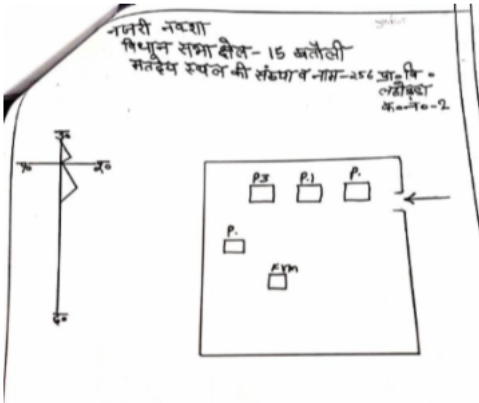 नजरी नक्शा
विधान सभा क्षेत्र - 15 खतौली
मतदेय स्थल की संख्या व नाम - 256 प्रा० वि०
क० नं० - 2
उ०
द०
P3 P.1 P.
P.
EVM